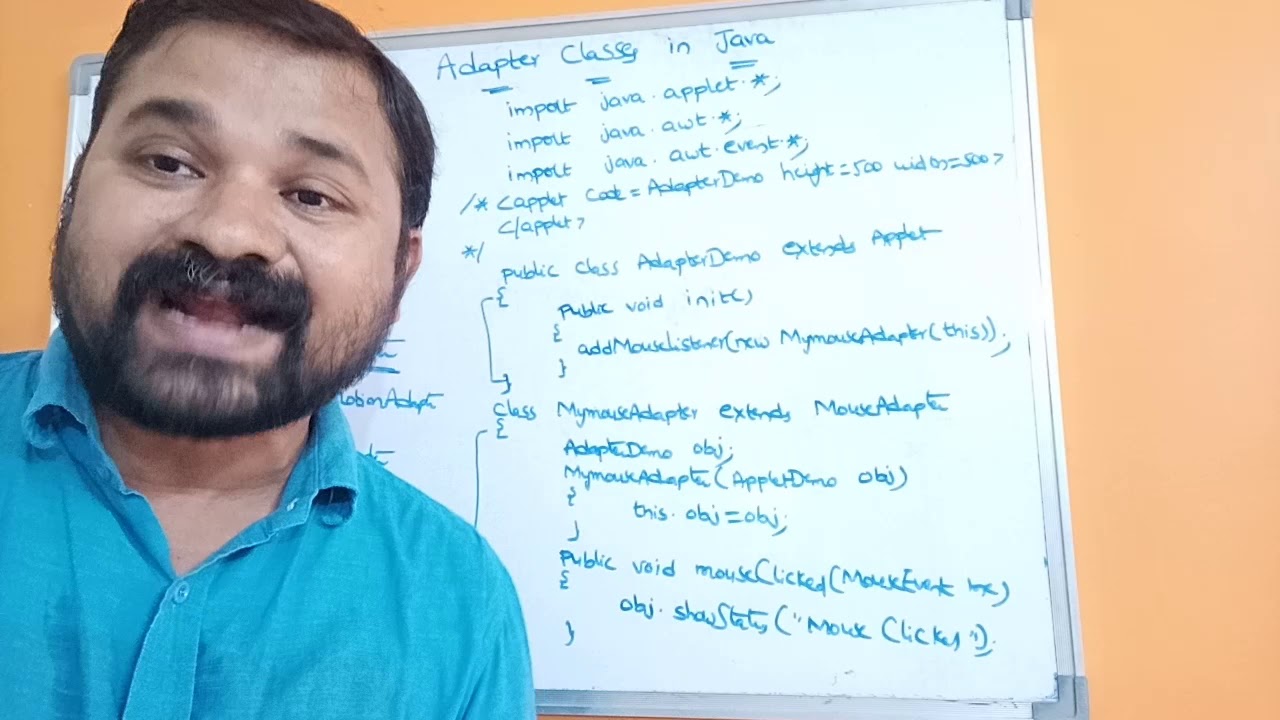 Adapter Classes in Java
import java.applet.*;
import java.awt.*;
import java.awt.event.*;
/* <applet code=AdapterDemo height=500 width=500>
</applet>
*/
public class AdapterDemo extends Applet
{
public void init()
{
addMouseListener(new MymouseAdapter(this));
}
}
class MymouseAdapter extends MouseAdapter
{
AdapterDemo obj;
MymouseAdapter(AppletDemo obj)
{
this.obj=obj;
}
public void mouseClicked(MouseEvent me)
{
obj.showStatus("Mouse Clicked");
}
otionAdapter